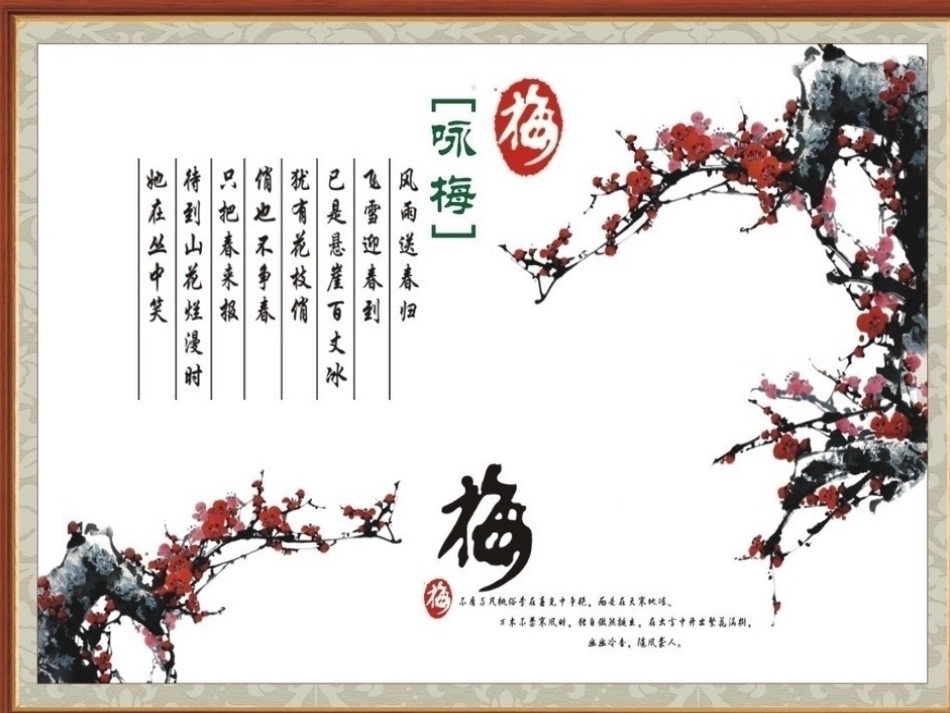 梅
[咏梅]
风雨送春归
飞雪迎春到
已是悬崖百丈冰
犹有花枝俏
俏也不争春
只把春来报
待到山花烂漫时
她在丛中笑
梅
梅
不屑与凡桃俗李在春光中争艳,而是在天寒地冻、
万木不禁寒风时,独自傲然挺立,在大雪中开出繁花满树,
幽幽冷香,随风袭人。